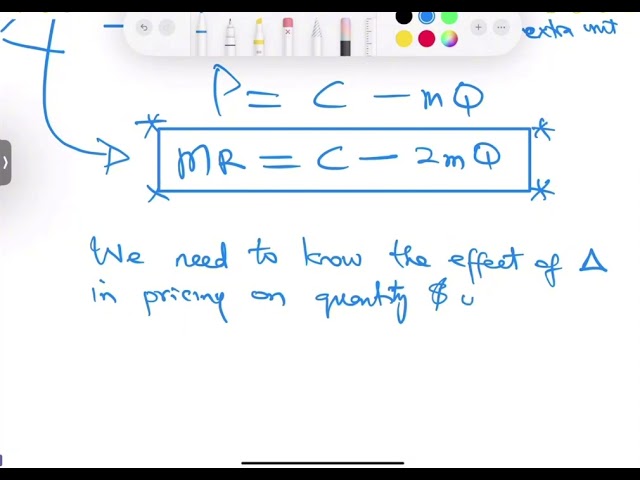 extra unit
P = C - mQ
MR = C - 2mQ
We need to know the effect of Δ
in pricing on quantity &